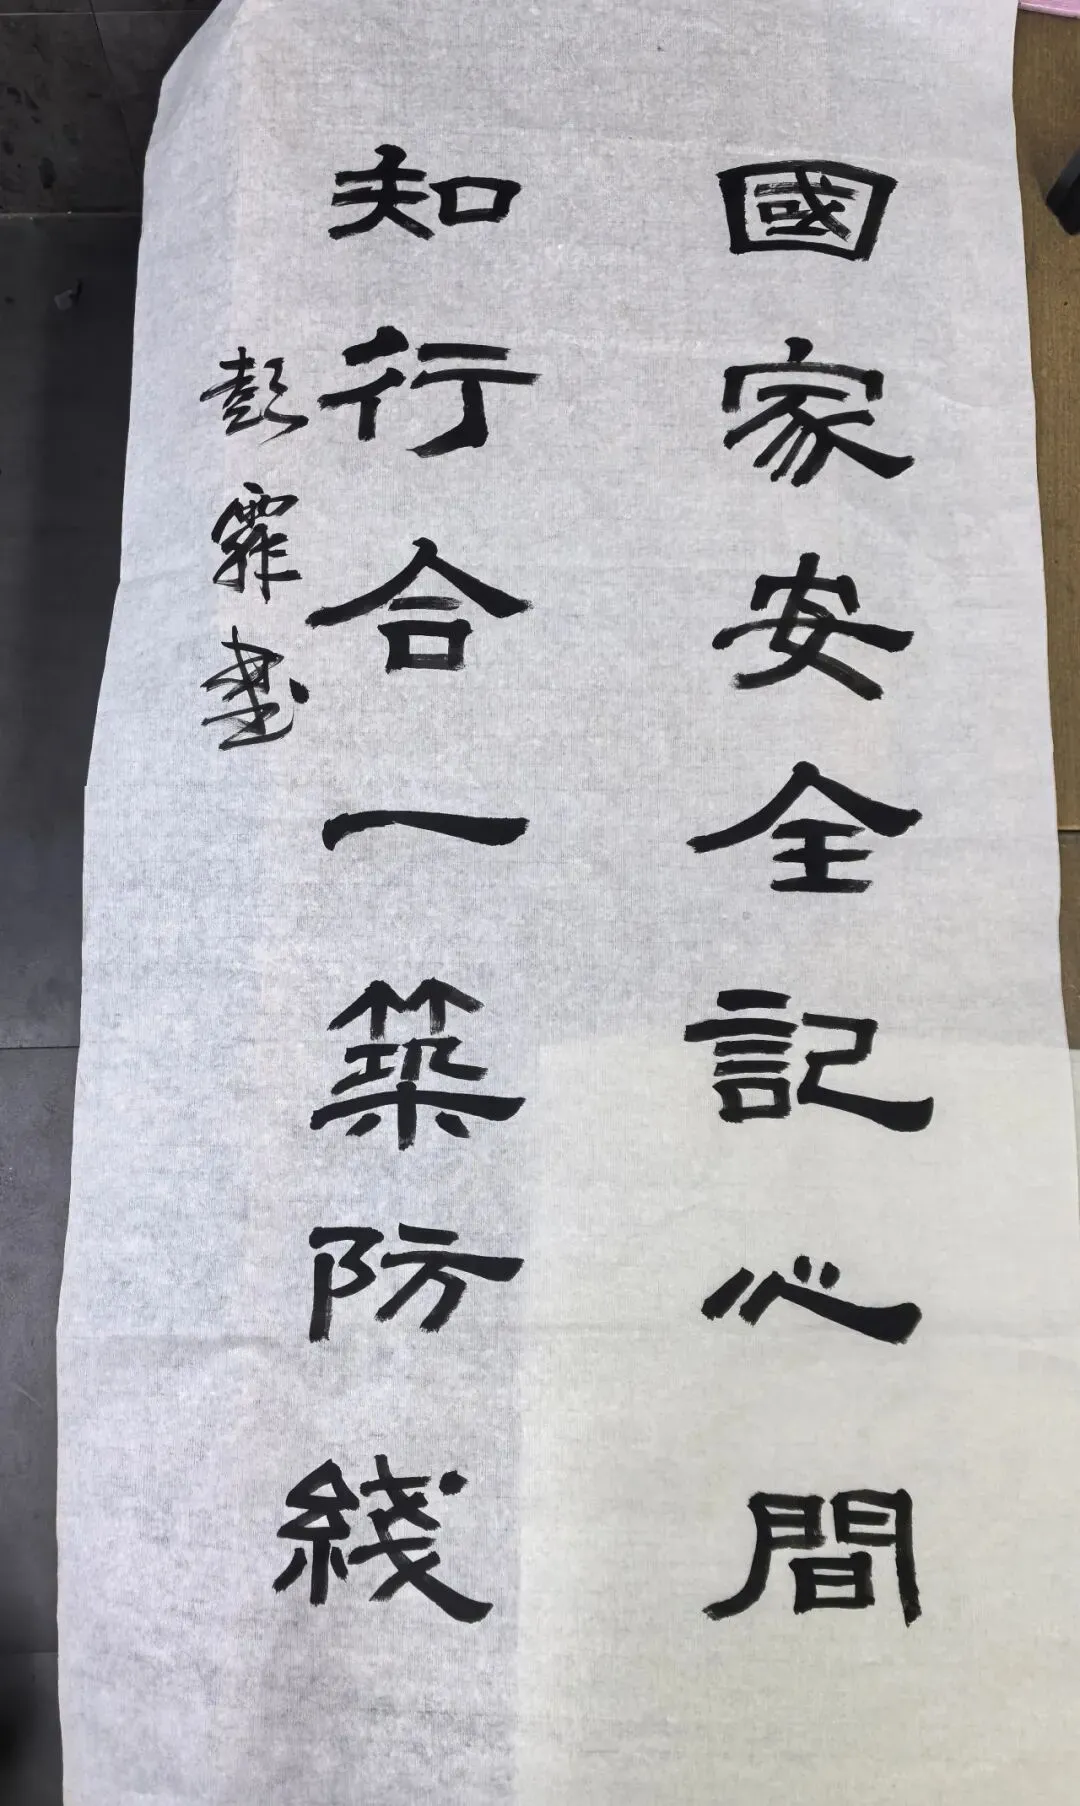 國家安全記心間
知行合一築防綫
彭霏書